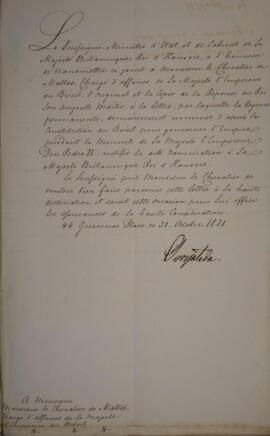 Le Soussigné Ministre d'Etat et de Cabinet de Sa
Majesté Britannique Roi d'Hanovre, a l'honneur
de transmettre ci joint à Monsieur le Chevalier de
Mattos, Chargé d'affaires de Sa Majesté l'Empereur
du Bresil, l'original et la copie de la Reponse du Roi
Son Auguste Maitre à la lettre, par laquelle la Regence
permanente, dernièrement nommée d'après la
Constitution du Bresil pour gouverner l'Empire
pendant la Minorité de Sa Majesté l'Empereur
Don Pedro II, notifie la dite nomination à Sa
Majesté Britannique Roi d'Hanovre.
Le Soussigné prie Monsieur le Chevalier de
vouloir bien faire parvenir cette lettre à sa haute
destination et saisit cette occasion pour lui offrir
les assurances de sa haute Consideration.
44 Grosvenor Place ce 31. Octobre 1831.
A Monsieur
Monsieur le Chevalier de Mattos,
Chargé d'Affaires de Sa Majesté
l'Empereur du Bresil